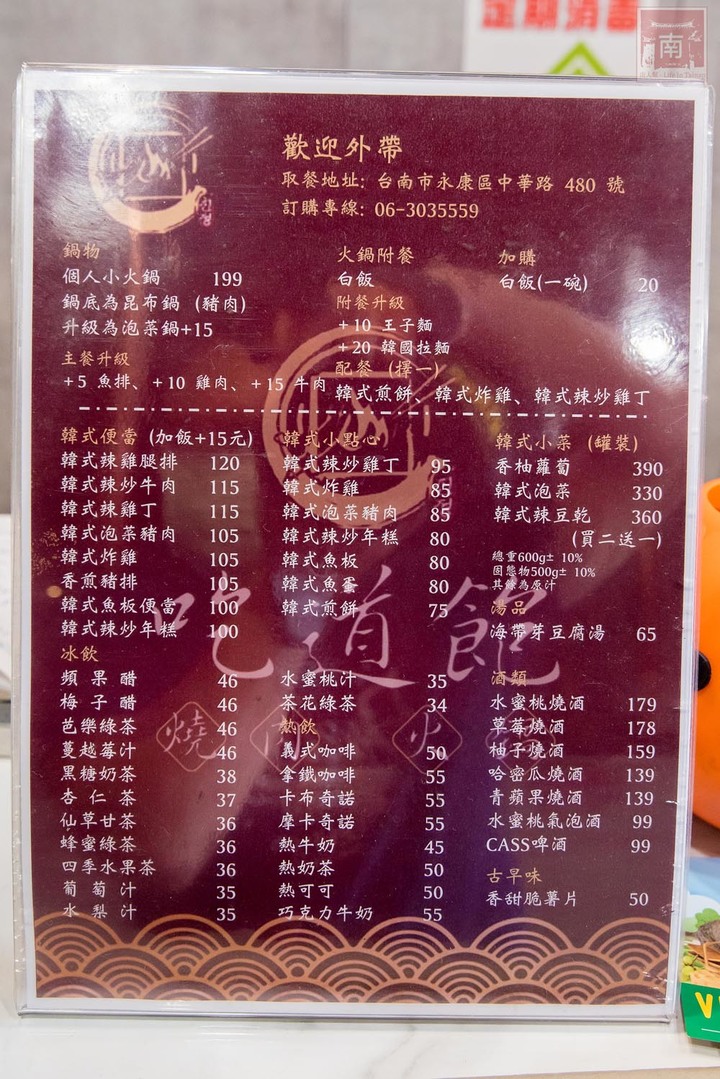 定期消毒
南
歡迎外帶
取餐地址: 台南市永康區中華路 480 號
訂購專線: 06-3035559
鍋物
個人小火鍋 199
鍋底為昆布鍋 (豬肉)
升級為泡菜鍋+15
主餐升級
+5 魚排、+10 雞肉、+15 牛肉
火鍋附餐
白飯
附餐升級
+10 王子麵
+20 韓國拉麵
配餐 (擇一)
韓式煎餅、韓式炸雞、韓式辣炒雞丁
加購
白飯(一碗) 20
韓式便當 (加飯+15元)
韓式辣雞腿排 120
韓式辣炒牛肉 115
韓式辣雞丁 115
韓式泡菜豬肉 105
韓式炸雞 105
香煎豬排 105
韓式魚板便當 100
韓式辣炒年糕 100
冰飲
蘋果醋 46
梅子醋 46
芭樂綠茶 46
蔓越莓汁 46
黑糖奶茶 38
杏仁茶 37
仙草甘茶 36
蜂蜜綠茶 36
四季水果茶 36
葡萄汁 35
水梨汁 35
韓式小點心
韓式辣炒雞丁 95
韓式炸雞 85
韓式泡菜豬肉 85
韓式辣炒年糕 80
韓式魚板 80
韓式魚蛋 80
韓式煎餅 75
水蜜桃汁 35
茶花綠茶 34
熱飲
義式咖啡 50
拿鐵咖啡 55
卡布奇諾 55
摩卡奇諾 55
熱牛奶 45
熱奶茶 50
熱可可 50
巧克力牛奶 55
韓式小菜 (罐裝)
香柚蘿蔔 390
韓式泡菜 330
韓式辣豆乾 360
(買二送一)
總重600g± 10%
固態物500g± 10%
其餘為原汁
湯品
海帶芽豆腐湯 65
酒類
水蜜桃燒酒 179
草莓燒酒 178
柚子燒酒 159
哈密瓜燒酒 139
青蘋果燒酒 139
水蜜桃氣泡酒 99
CASS啤酒 99
古早味
香甜脆薯片 50
吃道飽
燒肉火鍋